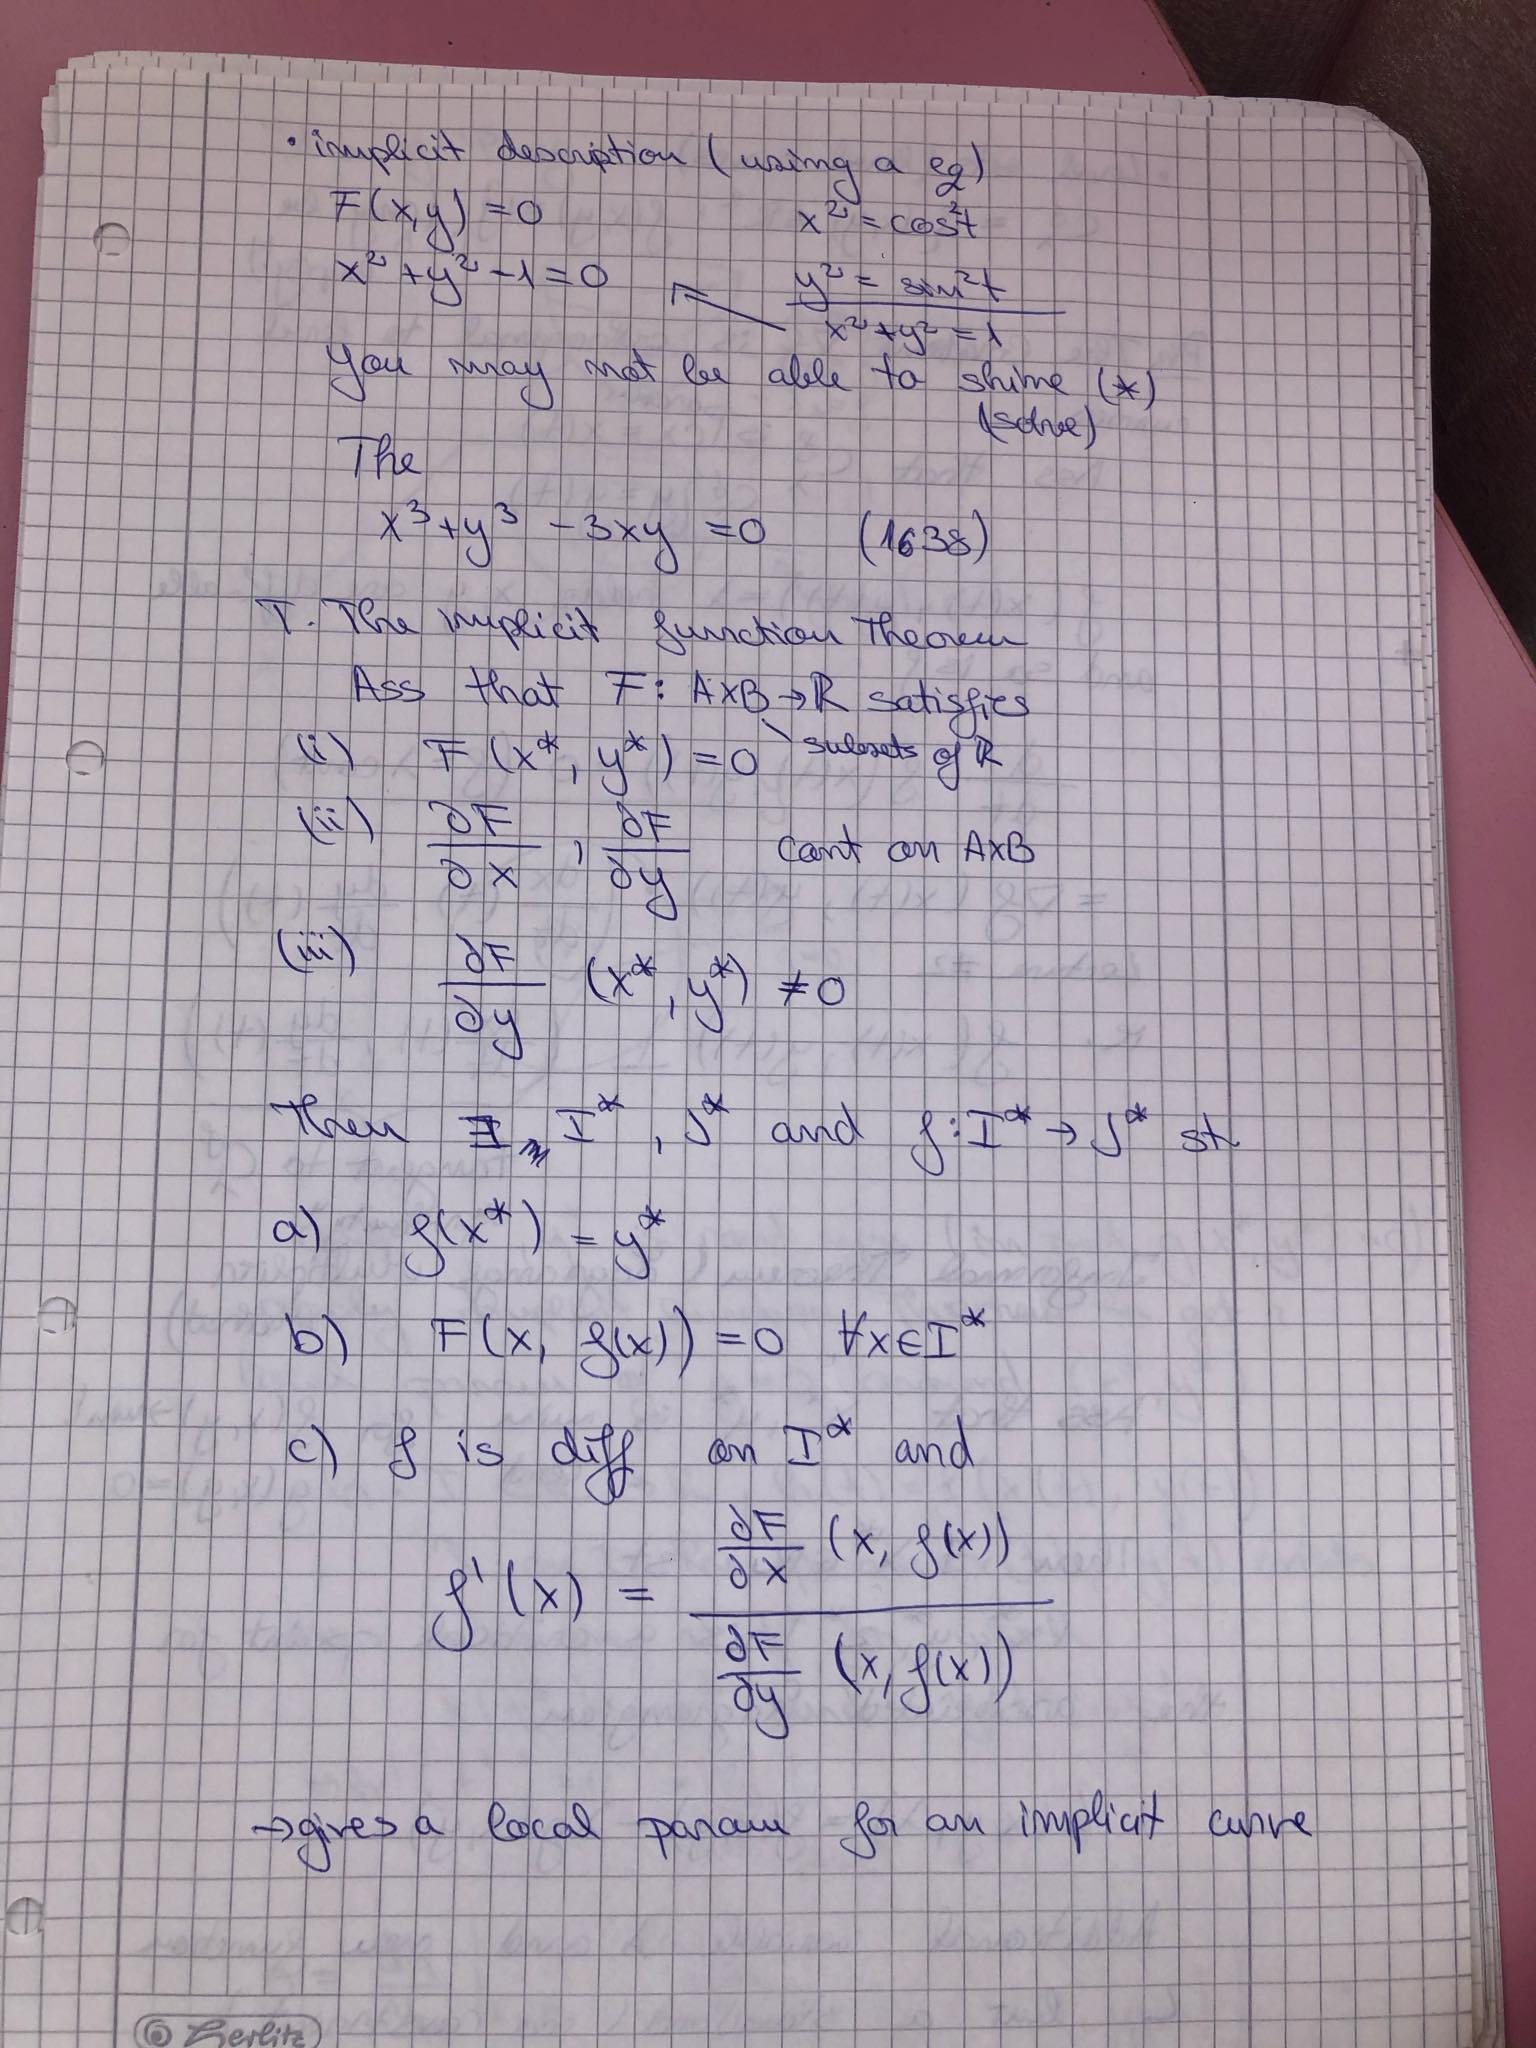 • implicit description (using a eq)
F(x,y) = 0
x² = cos²t
x² + y² - 1 = 0
y² = sin²t
x² + y² = 1
you may not be able to shine (*)
(solve)
The
x³ + y³ - 3xy = 0 (1638)
T. The implicit function Theorem
Ass that F: A×B → ℝ satisfies
subsets of ℝ
(i) F(x*, y*) = 0
(ii) ∂F/∂x , ∂F/∂y cont on A×B
(iii) ∂F/∂y (x*, y*) ≠ 0
Then ∃ I*, J* and f: I* → J* st
a) f(x*) = y*
b) F(x, f(x)) = 0 ∀x∈I*
c) f is diff on I* and
f'(x) = ∂F/∂x (x, f(x)) / ∂F/∂y (x, f(x))
→ gives a local param for an implicit curve
Herlitz